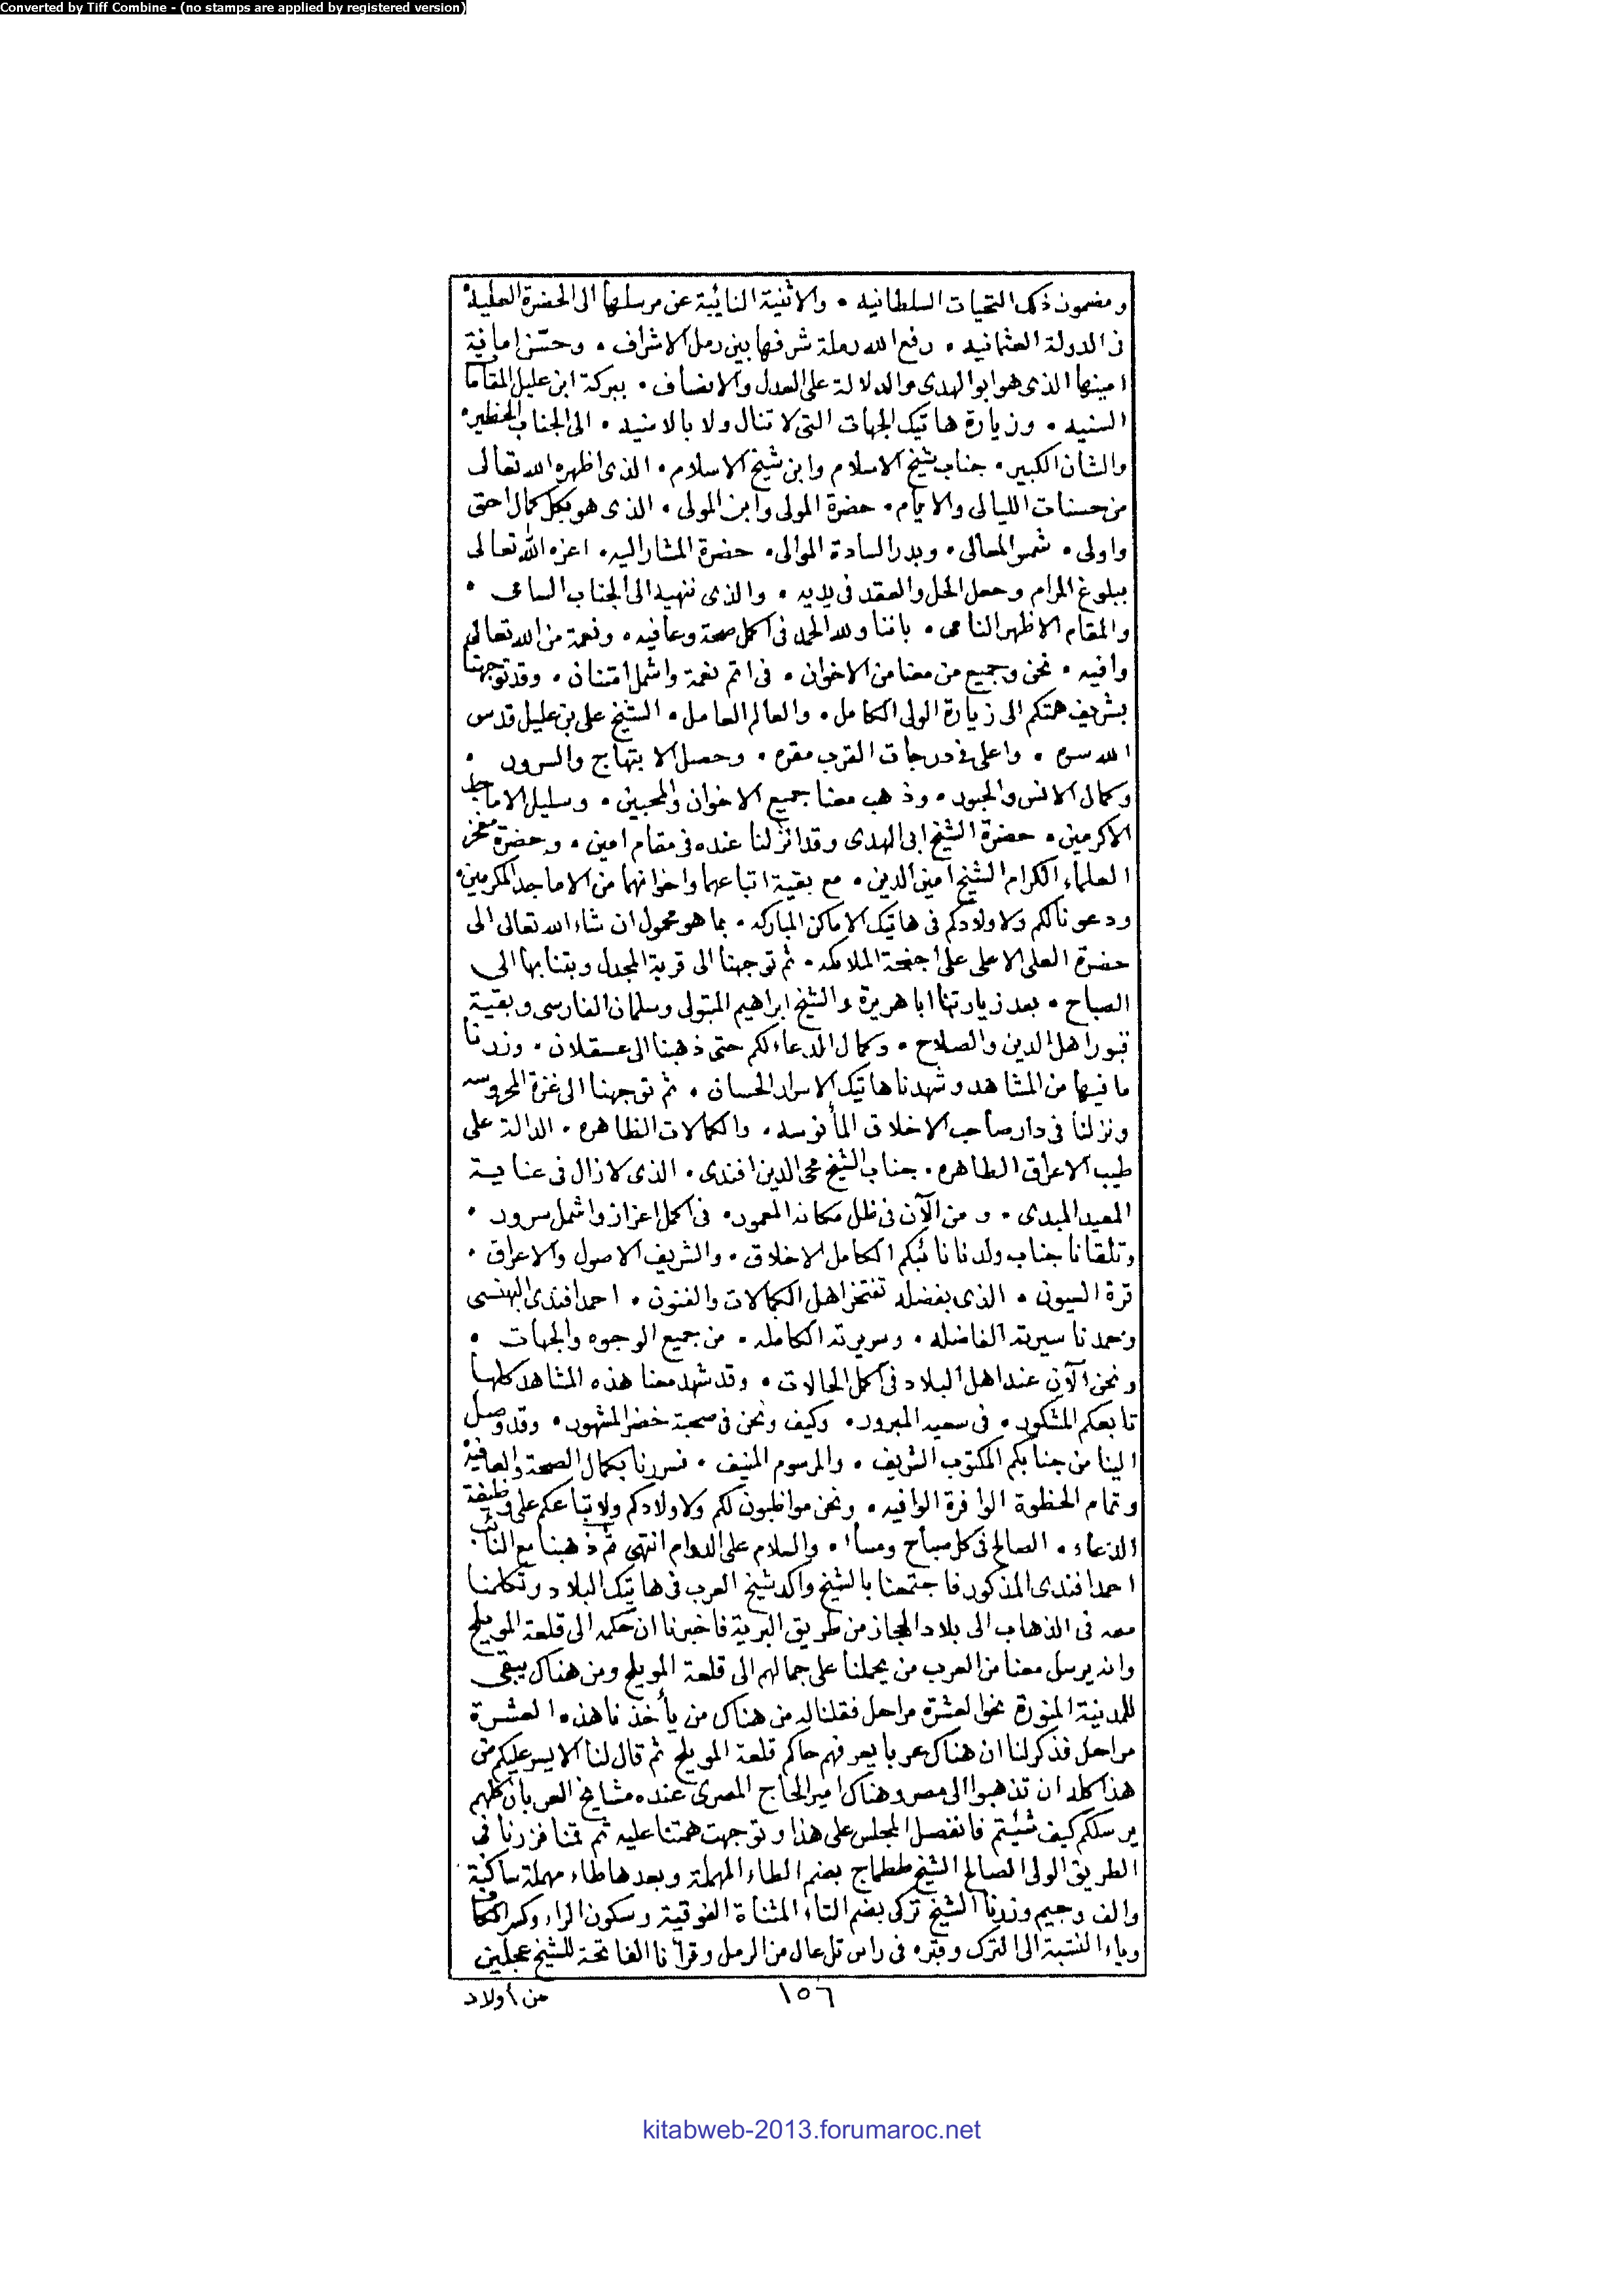 Converted by Tiff Combine - (no stamps are applied by registered version)
ومضمون ذلك التحيات السلطانيه • والاثنية النائبة عن مرسلها الى الحضرة العليه •
فى الدولة العثمانيه • رفع الله رملة شرفها بين رمل الاشراف • وحسّن امانية
امينها الذى هو ابو الهدى والدلالة على العدل والانصاف • ببركة ابن عليل المقاما
السنيه • وزيارة هاتيك الجهات التى لا تنال ولا بالامنيه • الى الجناب الخطير •
والشان الكبير • جناب شيخ الاسلام وابن شيخ الاسلام • الذى اظهره الله تعالى
من حسنات الليالى والايام • حضرة المولى وابن المولى • الذى هو بكل كمال احق
واولى • شمس المعالى • وبدر السادة الموالى • حضرة المشار اليه • اعزه الله تعالى
ببلوغ المرام وجعل الحل والعقد فى يديه • والذى ننهيه الى الجناب السامى •
والمقام الاظهر النامى • باننا ولله الحمد فى اكمل صحة وعافيه • ونعمة من الله تعالى
وافيه • نحن وجميع من معنا من الاخوان • فى اتم نعمة واشمل امتنان • وقد توجهنا
بشريف همتكم الى زيارة الولى الكامل • والعالم العامل • الشيخ على بن عليل قدس
الله سره • واعلى فى درجات القرب مقره • وحصل الابتهاج والسرور •
وكمال الانس والحبور • وذهب معنا جميع الاخوان والمحبين • وسليل الاماجد
الاكرمين • حضرة الشيخ ابى الهدى وقد انزلنا عنده فى مقام امين • وحضرة مفخر
العلماء الكرام الشيخ امين الدين • مع بقية اتباعهما واخوانهما من الاماجد المكرمين •
ودعونا لكم ولاولادكم فى هاتيك الاماكن المباركه • بما هو محمول ان شاء الله تعالى الى
حضرة العلى الاعلى على اجنحة الملائكه • ثم توجهنا الى قرية المجدل وبتنا بها الى
الصباح • بعد زيارتنا ابا هريرة والشيخ ابراهيم المتبولى وسلمان الفارسى وبقية
قبور اهل الدين والصلاح • وكمال الدعاء لكم حتى ذهبنا الى عسقلان • وزرنا
ما فيها من المشاهد وشهدنا هاتيك الاسرار الحسان • ثم توجهنا الى غزة المحروسه
ونزلنا فى دار صاحب الاخلاق المأنوسه • والكمالات الظاهره • الدالة على
طيب الاعراق الطاهره • جناب الشيخ محى الدين افندى • الذى لازال فى عناية
المعيد المبدى • و من الآن فى ظل مكانه المعمور • فى اكمل اعزاز واشمل سرور •
وتلقانا جناب ولدنا نائبكم الكامل الاخلاق • والشريف الاصول والاعراق •
قرة العيون • الذى بفضله تفتخر اهل الكمالات والفنون • احمد افندى البهنسى
وحمدنا سيرته الفاضله • وسريرته الكامله • من جميع الوجوه والجهات •
ونحن الآن عند اهل البلاد فى اكمل الحالات • وقد شهد معنا هذه المشاهد كلها
تابعكم المشكور • فى سعيه المبرور • وكيف ونحن فى صحبة خضر المشهور • وقد وصل
الينا من جنابكم المكتوب الشريف • والمرسوم المنيف • فسررنا بكمال الصحة والعافية
وتمام الحظوة الوافرة الوافيه • ونحن مواظبون لكم ولاولادكم ولاتباعكم على وظيفة
الدعاء • الصالح فى كل صباح ومساء • والسلام على الدوام انتهى ثم ذهبنا مع النائب
احمد افندى المذكور فاجتمعنا بالشيخ واكد شيخ العرب فى هاتيك البلاد وتكلمنا
معه فى الذهاب الى بلاد الحجاز من طريق البرية فاخبرنا ان حكمه الى قلعة المويلح
وانه يرسل معنا من العرب من يحملنا على جمالهم الى قلعة المويلح ومن هناك يبقى
للمدينة المنورة نحو العشرة مراحل فقلنا له من هناك من يأخذنا هذه العشرة
مراحل فذكر لنا ان هناك عربا يعرفهم حاكم قلعة المويلح ثم قال لنا الايسر عليكم من
هذا كله ان تذهبوا الى مصر وهناك امير الحاج المصرى عنده مشايخ العربان كلهم
يرسلكم كيف شئتم فانفصل المجلس على هذا وتوجهت همتنا عليه ثم قمنا فزرنا فى
الطريق الولى الصالح الشيخ طماج بضم الطاء المهملة وبعدها طاء مهملة ساكنة
والف وجيم وزرنا الشيخ تركى بضم التاء المثناة الفوقية وسكون الراء وكسر الكاف
وياء النسبة الى الترك وقبره فى راس تل عال من الرمل وقرأنا الفاتحة للشيخ عجلين
من أولاد
١٥٦
kitabweb-2013.forumaroc.net